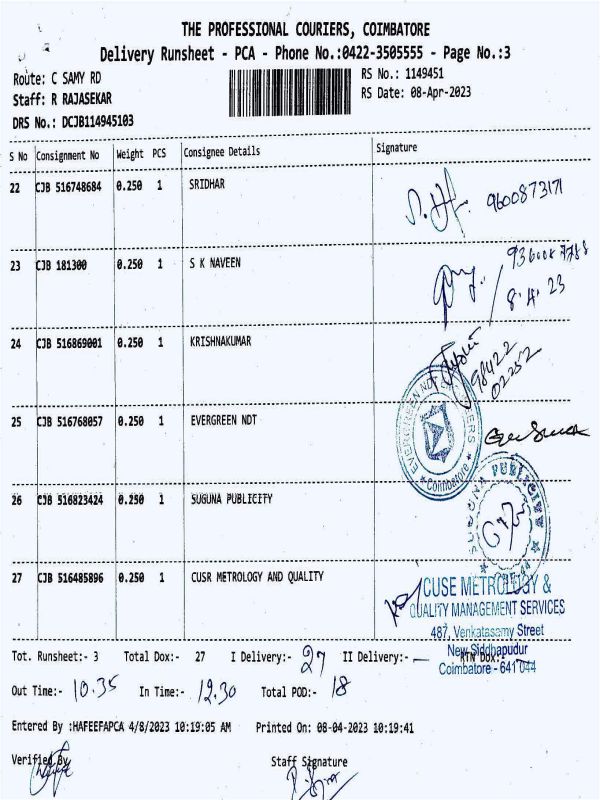 THE PROFESSIONAL COURIERS, COIMBATORE
Delivery Runsheet - PCA - Phone No.:0422-3505555 - Page No.:3
Route: C SAMY RD
RS No.: 1149451
Staff: R RAJASEKAR
RS Date: 08-Apr-2023
DRS No.: DCJB114945103
S No Consignment No Weight PCS Consignee Details Signature
22 CJB 516748684 0.250 1 SRIDHAR 9600873171
23 CJB 181300 0.250 1 S K NAVEEN
8.4.23
24 CJB 516869001 0.250 1 KRISHNAKUMAR
98422
02252
25 CJB 516768057 0.250 1 EVERGREEN NDT
EVERGREEN NDT
Coimbatore
26 CJB 516823424 0.250 1 SUGUNA PUBLICITY
SUGUNA PUBLICITY
27 CJB 516485896 0.250 1 CUSR METROLOGY AND QUALITY
CUSE METROLOGY &
QUALITY MANAGEMENT SERVICES
487, Venkatasamy Street
New Siddhapudur
Coimbatore - 641 044
Tot. Runsheet:- 3 Total Dox:- 27 I Delivery:- 27 II Delivery:- — RTN Dox:-
Out Time:- 10.35 In Time:- 12.30 Total POD:- 18
Entered By :HAFEEFAPCA 4/8/2023 10:19:05 AM Printed On: 08-04-2023 10:19:41
Verified By
Staff Signature